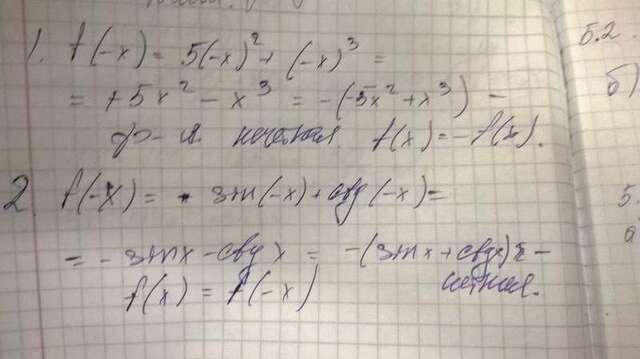 1. f(-x) = 5(-x)² + (-x)³ =
= +5x² - x³ = -(-5x² + x³) -
ф-я нечетная f(x) = -f(x).
2 f(-x) = sin(-x) + ctg(-x) =
= - sin x - ctg x = -(sin x + ctg x) = -
f(x) = f(-x) четная.
5.2
б)
5.